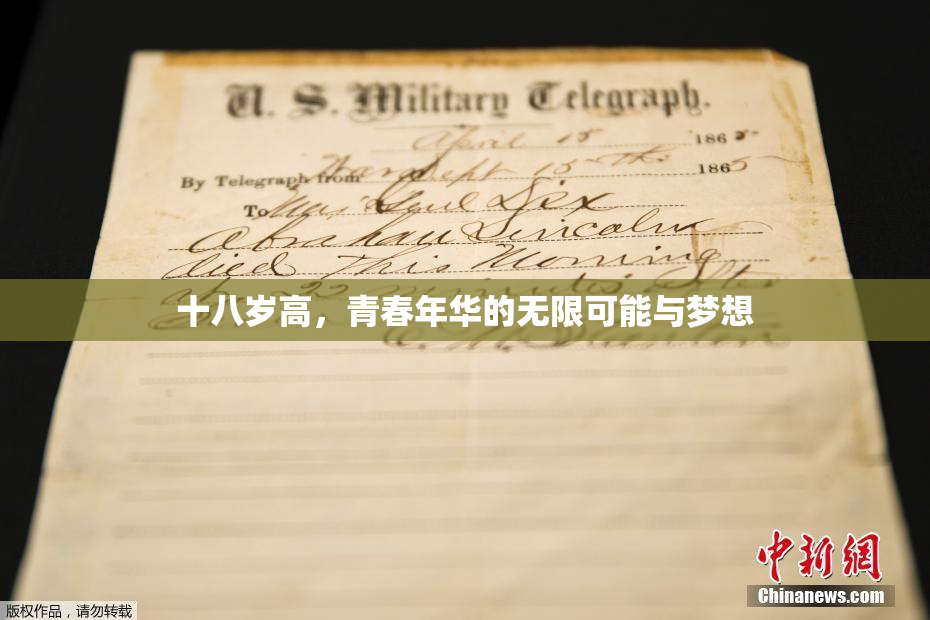 U. S. Military Telegraph.
April 15 1865
By Telegraph from War Dept 15th 1865
To Maj Genl Dix
Abraham Lincoln
died This Morning
at 22 minutes after
十八岁高，青春年华的无限可能与梦想
E. M. Stanton
中新网
Chinanews.com
版权作品，请勿转载